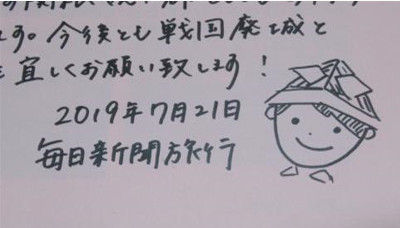 ます。今後とも戦国廃城と
宜しくお願い致します！
2019年7月21日
毎日新聞旅行